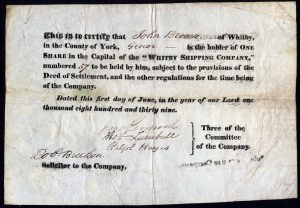 This is to certify that John Brown of Whitby,
in the County of York, Grocer is the holder of ONE
SHARE in the Capital of the "WHITBY SHIPPING COMPANY,"
numbered 57 to be held by him, subject to the provisions of the
Deed of Settlement, and the other regulations for the time being
of the Company.
Dated this first day of June, in the year of our Lord one
thousand eight hundred and thirty nine.
Thos Turnbull
Ralph Hayes
Three of the
Committee
of the Company.
Solicitor to the Company.